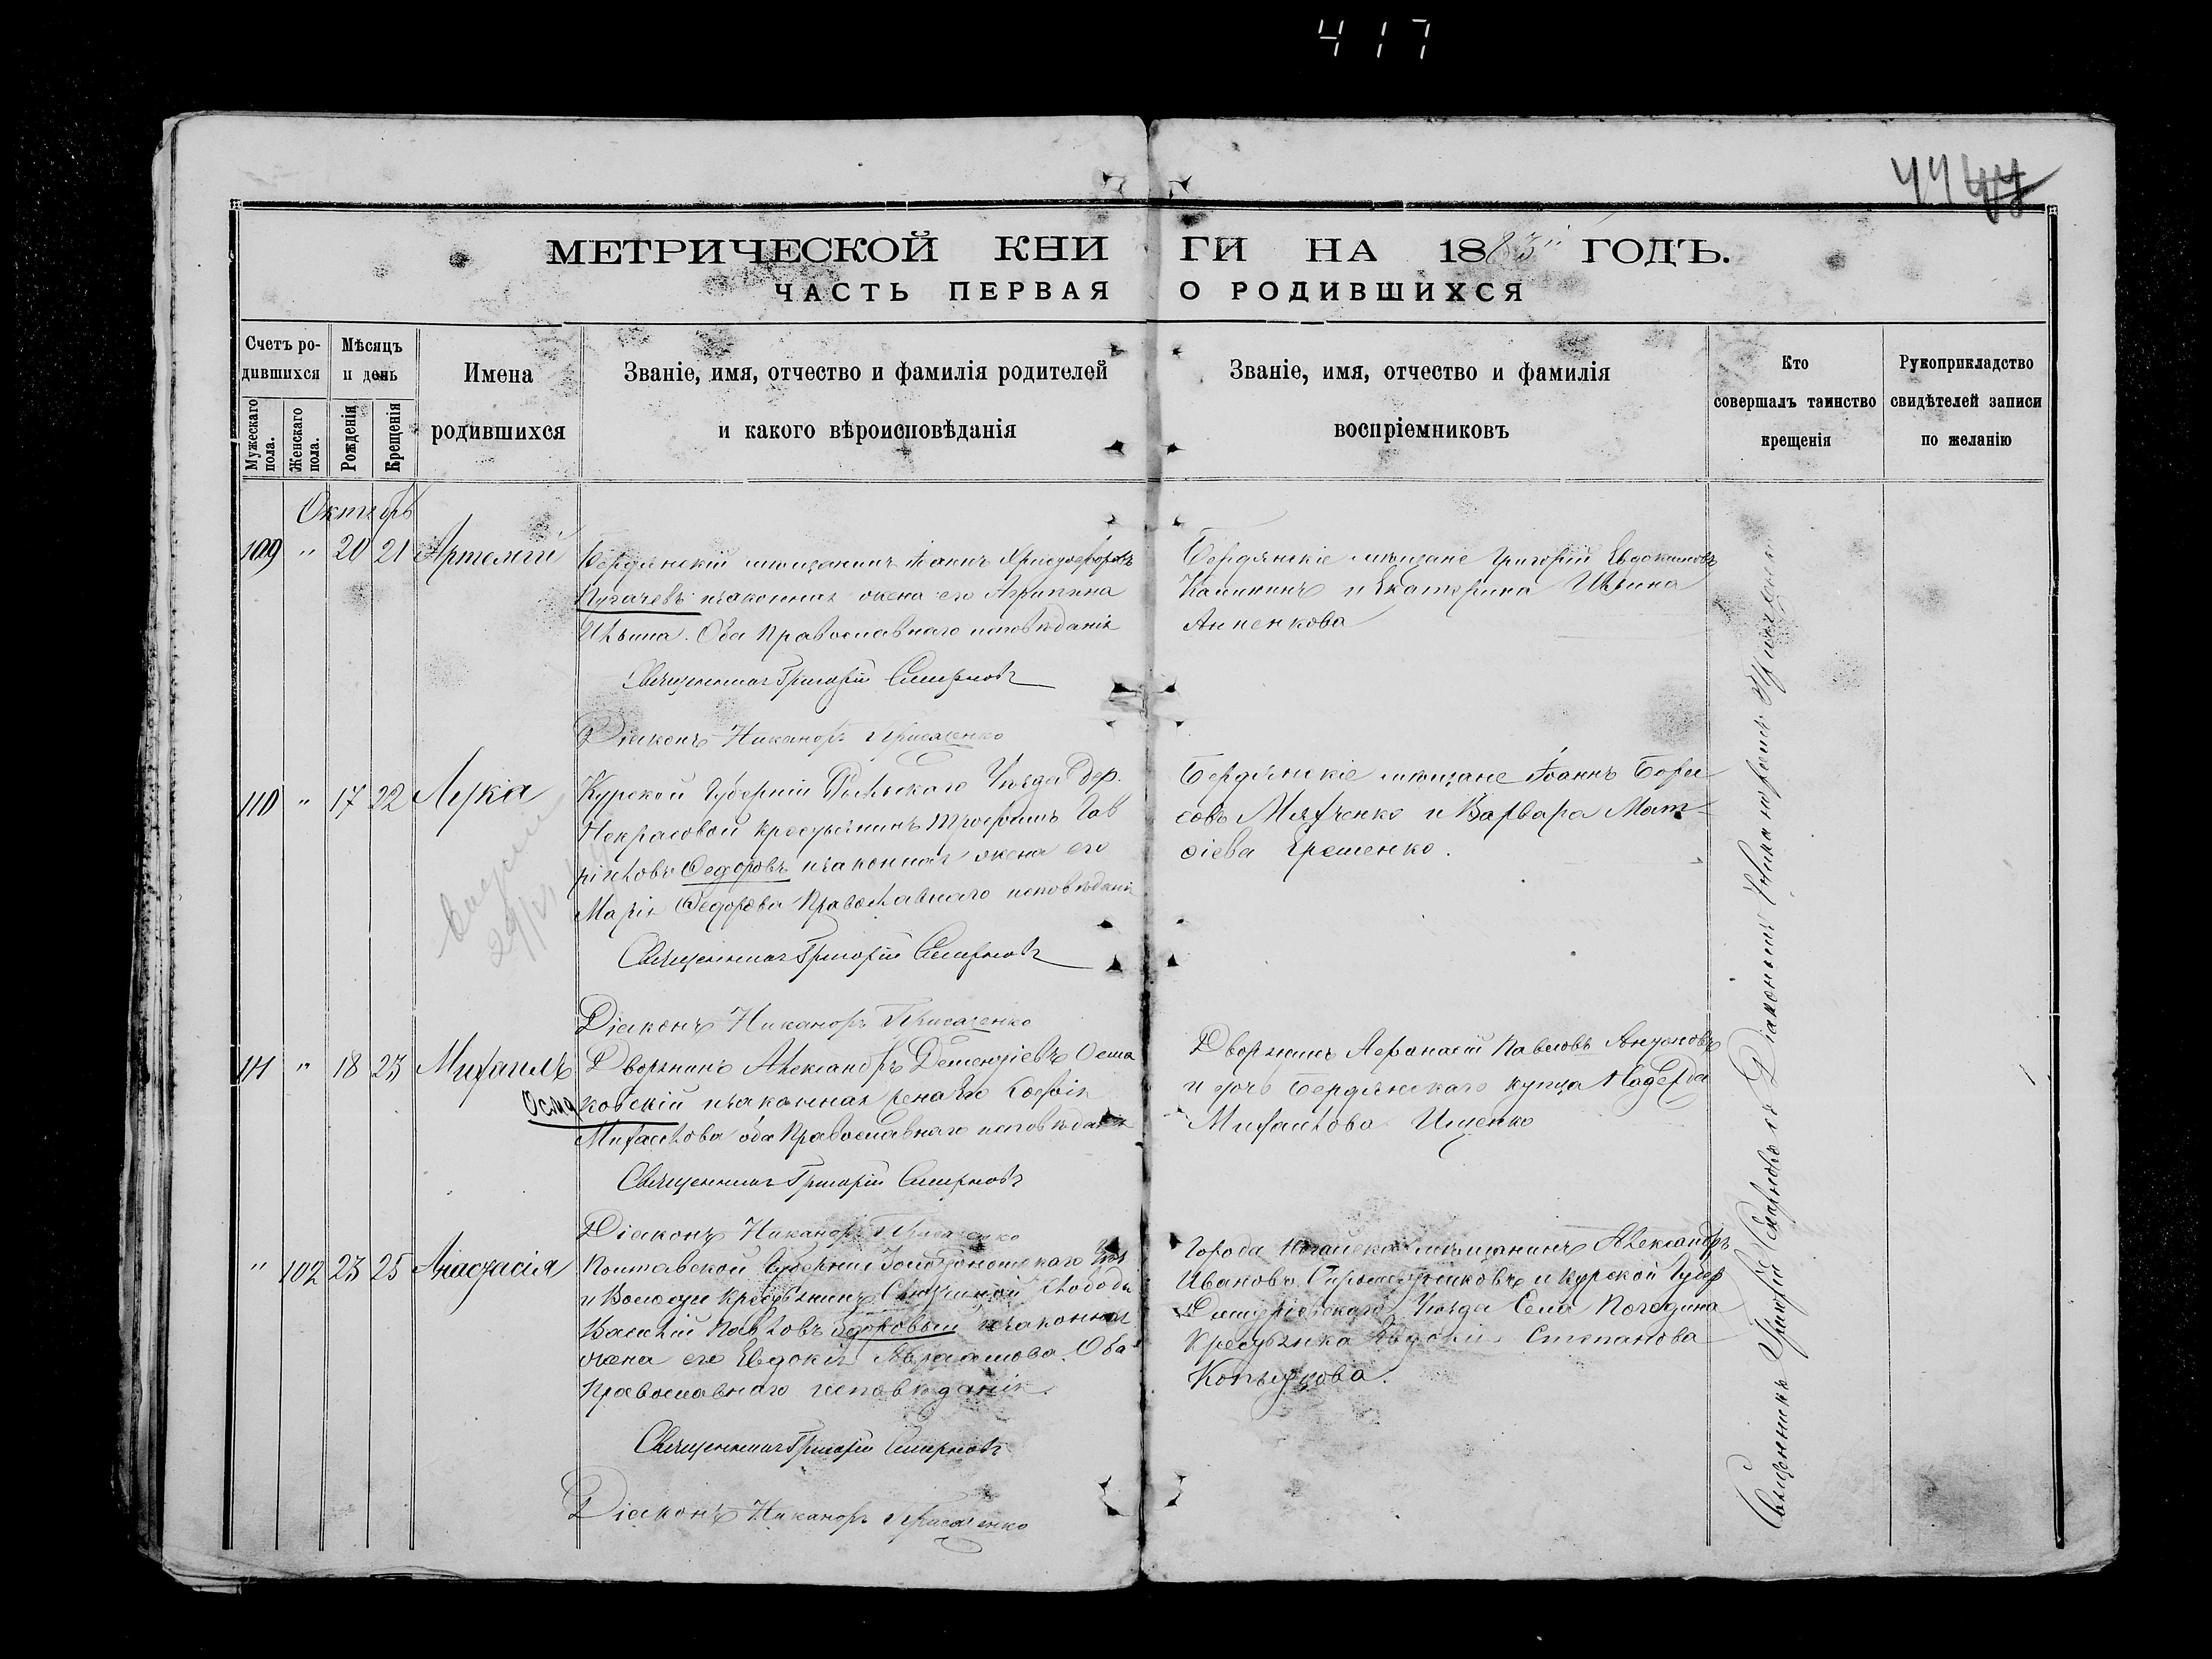 417
МЕТРИЧЕСКОЙ КНИГИ НА 1883й ГОДЪ.
ЧАСТЬ ПЕРВАЯ О РОДИВШИХСЯ
Счетъ ро-
дившихся
Мужескаго пола.
Женскаго пола.
Мѣсяцъ
и день
Рожденія
Крещенія
Имена
родившихся
Званіе, имя, отчество и фамилія родителей
и какого вѣроисповѣданія
Званіе, имя, отчество и фамилія
воспріемниковъ
Кто
совершалъ таинство
крещенія
Рукоприкладство
свидѣтелей записи
по желанію
Октябрь
109 " 20 21 Артемій
Бердянскій мѣщанинъ Іоаннъ Христофоровъ
Пугачевъ и законная жена его Агрипина
Ильина. Оба Православнаго исповѣданія
Священникъ Григорій Смирновъ
Діаконъ Никаноръ
Бердянскіе мѣщане Григорій Евдокимовъ
Калининъ и Екатерина Ильина
Анненкова
110 " 17 22 Лука
Курской Губерніи Рыльскаго Уѣзда дер.
Некрасовой крестьянинъ Трофимъ Гав
ріиловъ Федоровъ и законная жена его
Марія Федорова Православнаго исповѣданія
Священникъ Григорій Смирновъ
Діаконъ Никаноръ
Бердянскіе мѣщане Іоаннъ Бори
совъ и Варвара Мат-
ѳіева Ерешенко.
111 " 18 23 Михаилъ
Дворянинъ Александръ Дементіевъ Осма
Осма ковскій и законная жена его Софія
Михаилова оба Православнаго исповѣданія
Священникъ Григорій Смирновъ
Діаконъ Никаноръ
Дворянинъ Афанасій Павловъ Антоновъ
и дочь Бердянскаго купца Надежда
Михаилова Ищенко
" 102 23 25 Анастасія
Полтавской Губерніи Золотоношскаго Уѣз
и Волости крестьянинъ слободы
Василій Павловъ и законная
жена его Евдокія Авраамова. Оба
Православнаго исповѣданія.
Священникъ Григорій Смирновъ
Діаконъ Никаноръ
Города Ногайска мѣщанинъ Александръ
Ивановъ и Курской Губер
Дмитріевскаго Уѣзда Села Погодина
Крестьянка Евдокія Степанова
Копылова.
Священникъ Григорій Смирновъ съ Діакономъ Никаноромъ